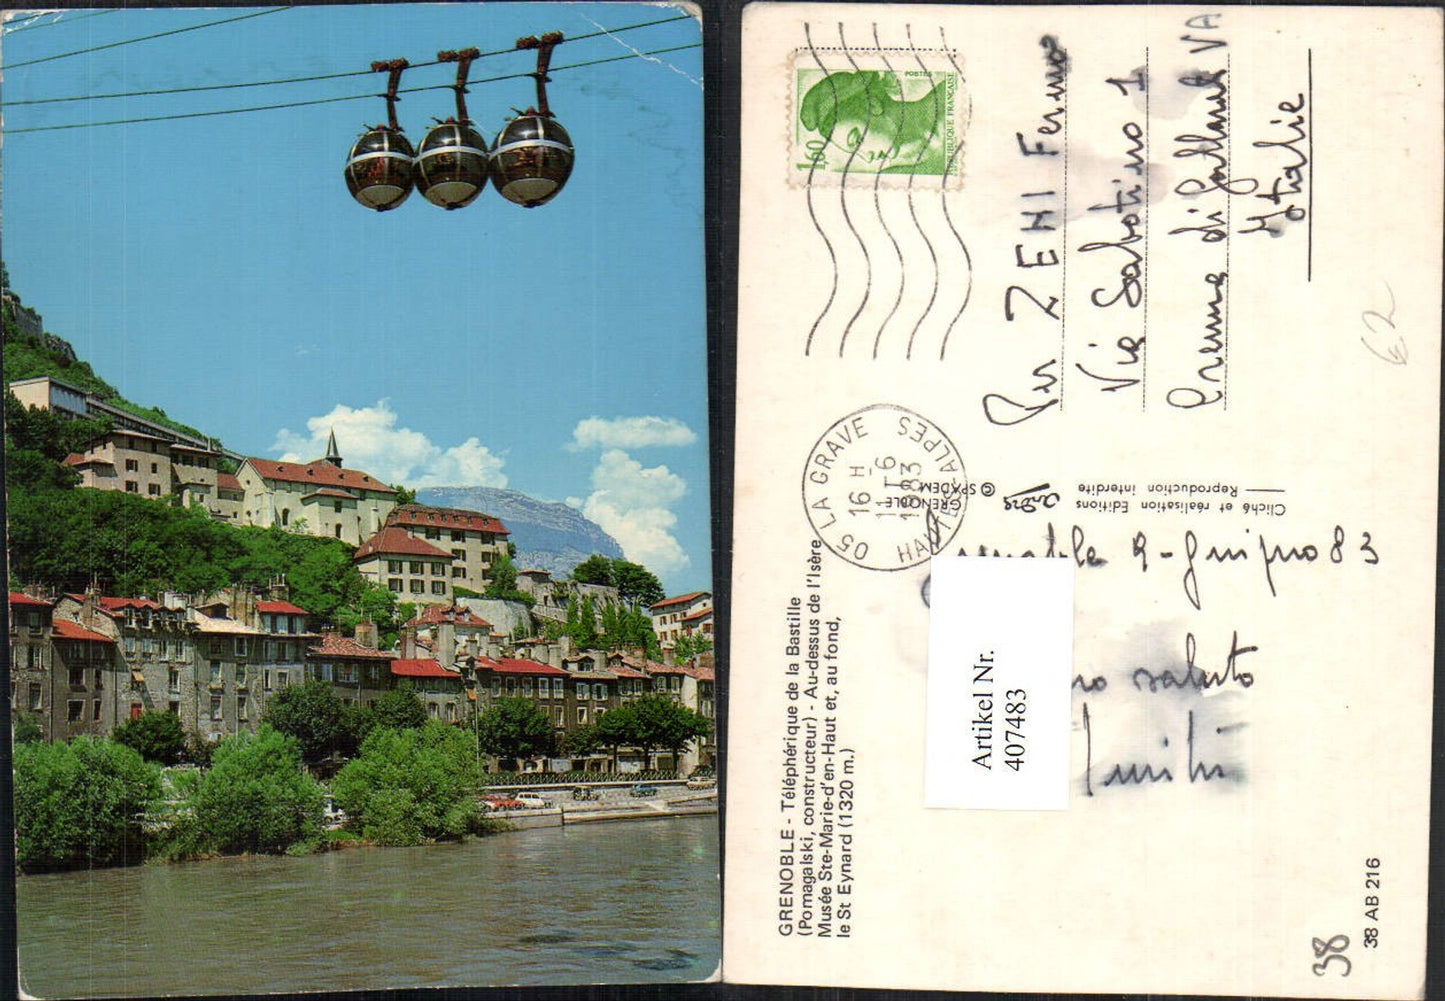 GRENOBLE - Téléphérique de la Bastille
(Pomagalski, constructeur) - Au-dessus de l'Isère
Musée Ste-Marie-d'en-Haut et, au fond,
le St Eynard (1320 m.)
POSTES
RÉPUBLIQUE FRANÇAISE
1,60
05 LA GRAVE
16 H
11-6
1983
HAUTES-ALPES
GRENOBLE
© SPADEM
Cliché et réalisation Editions
Reproduction interdite
ZENI Fermo
Via Sabotino 1
VA
Italie
9-Giugno 83
saluto
Artikel Nr.
407483
62
38
38 AB 216